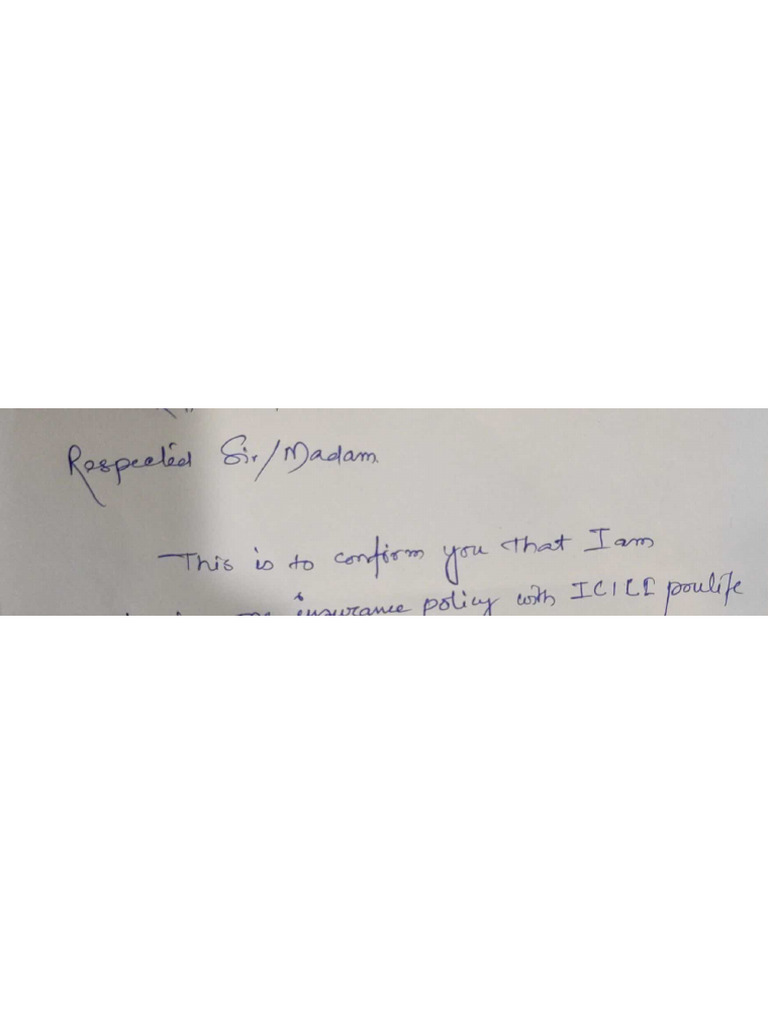 Respected Sir/Madam
This is to confirm you that I am
insurance policy with ICICI poulife